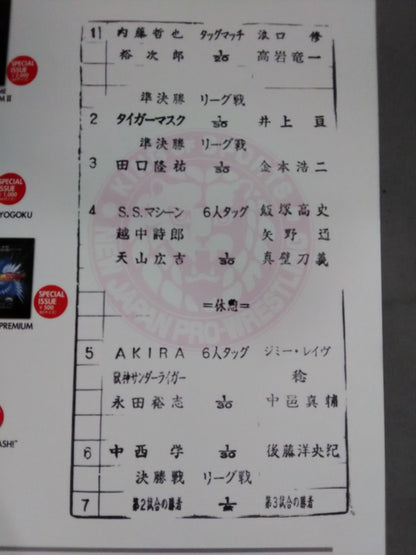 1 内藤哲也 タッグマッチ 浪口 修
裕次郎 1/20 高岩竜一
準決勝 リーグ戦
2 タイガーマスク 1/30 井上 亘
準決勝 リーグ戦
3 田口隆祐 1/30 金本浩二
4 S.S.マシーン 6人タッグ 飯塚高史
越中詩郎 矢野 通
天山広吉 1/30 真壁刀義
=休憩=
5 AKIRA 6人タッグ ジミー・レイヴ
獣神サンダーライガー 稔
永田裕志 1/30 中邑真輔
6 中西 学 1/30 後藤洋央紀
決勝戦 リーグ戦
7 第2試合の勝者 第3試合の勝者
KING OF SPORTS
NEW JAPAN PRO-WRESTLING
SPECIAL ISSUE
SPECIAL ISSUE ¥1,000
YOGOKU
SPECIAL ISSUE ¥500
PREMIUM
ASH!"